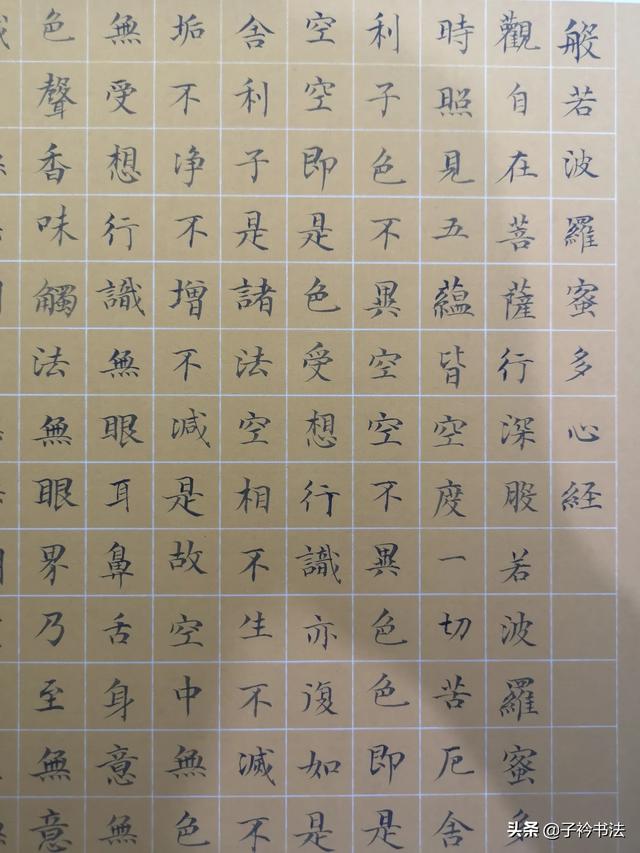 般若波羅蜜多心経
觀自在菩薩行深般若波羅蜜多
時照見五蘊皆空度一切苦厄舍
利子色不異空空不異色色即是
空空即是色受想行識亦復如是
舍利子是諸法空相不生不滅不
垢不净不增不减是故空中無色
無受想行識無眼耳鼻舌身意無
色聲香味觸法無眼界乃至無意
头条 @子衿书法